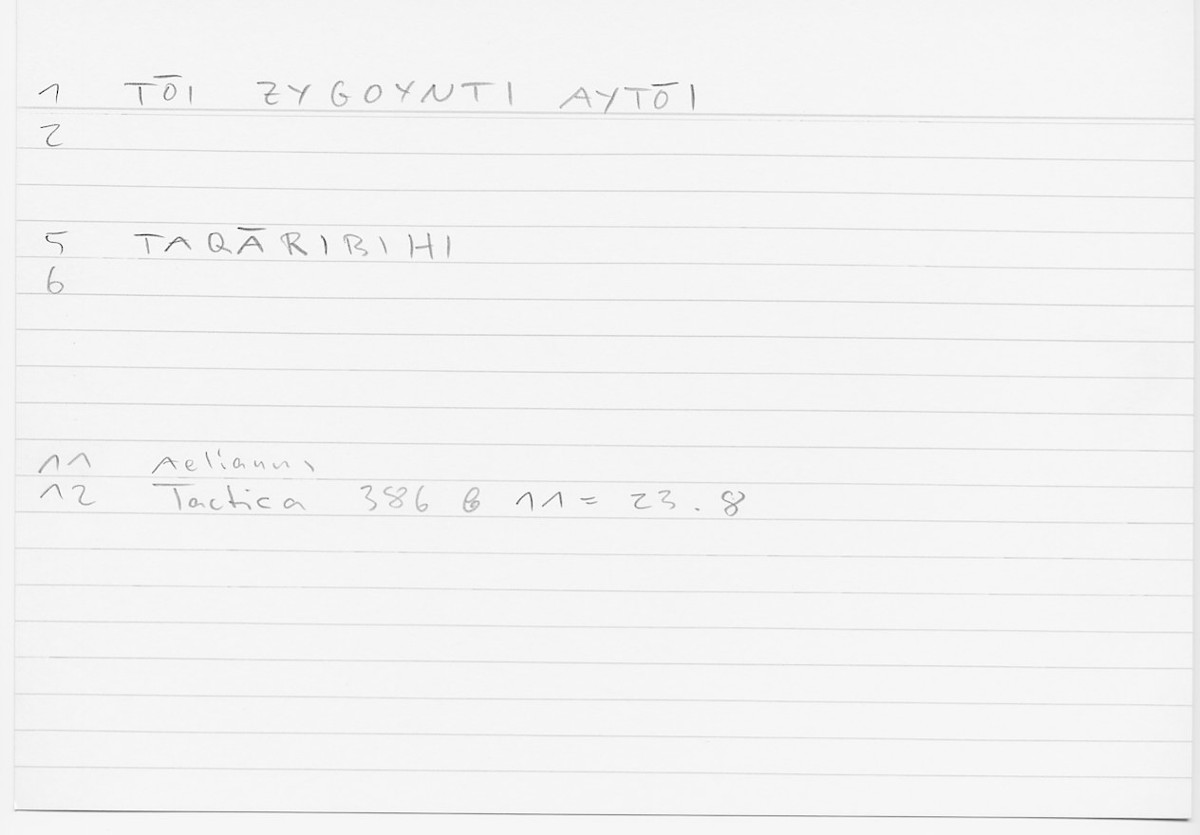 1 TŌI ZYGOYNTI AYTŌI
2
5 TAQĀRIBIHI
6
11 Aelianus
12 Tactica 386 6 11 = 23.8